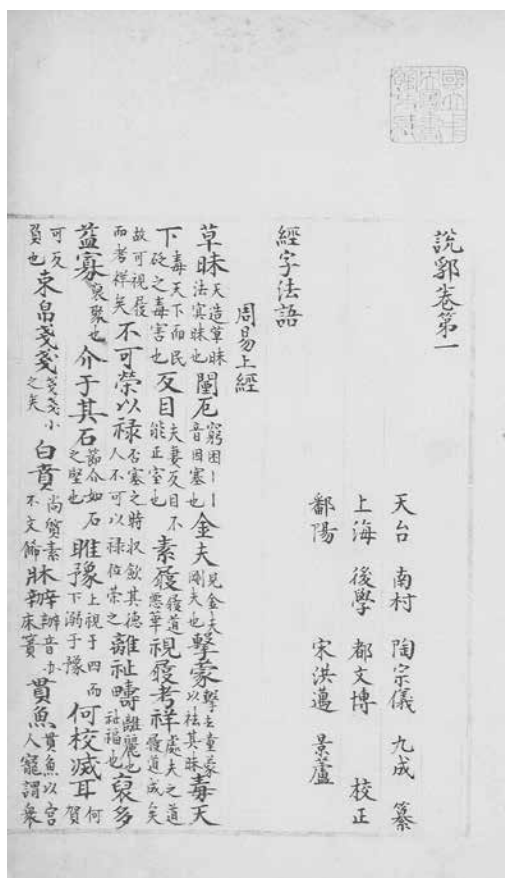 國立中央圖書館收藏
說郛卷第一
天台 南村 陶宗儀 九成 纂
上海 後學 都文博 校正
鄱陽 宋洪邁 景蘆
經字法語
周易上經
草昧天造草昧法寅昧也闉厄窮困丨丨音因塞也金夫見金夫剛夫也擊蒙擊去童蒙以祛其昧毒天
下毒天下而民砭之毒害也反目夫妻反目不能正室也素履履道惡華視履考祥處夫之道履道成矣
故可視履而考祥矣不可榮以祿否塞之時收斂其德人不可以祿位榮之離祉疇離麗也祉福也裒多
益寡裒聚也介于其石節介如石之堅也睢豫上視于四而下溺于豫何校滅耳何賀
可反負也束帛戔戔戔戔小之矣白賁尚質素不文餙牀辨辨音办牀簀貫魚貫魚以宮人寵謂衆